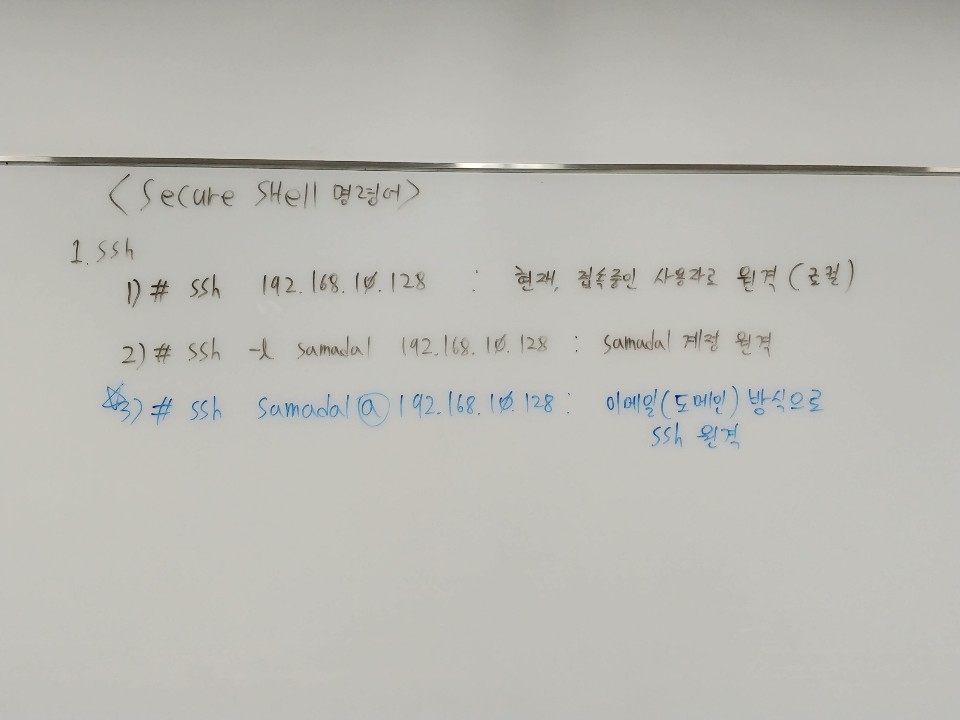 <Secure SHell 명령어>
1. ssh
1) # ssh 192.168.10.128 : 현재, 접속중인 사용자로 원격 (로컬)
2) # ssh -l samadal 192.168.10.128 : samadal 계정 원격
☆3) # ssh samadal@192.168.10.128 : 이메일(도메인) 방식으로
ssh 원격